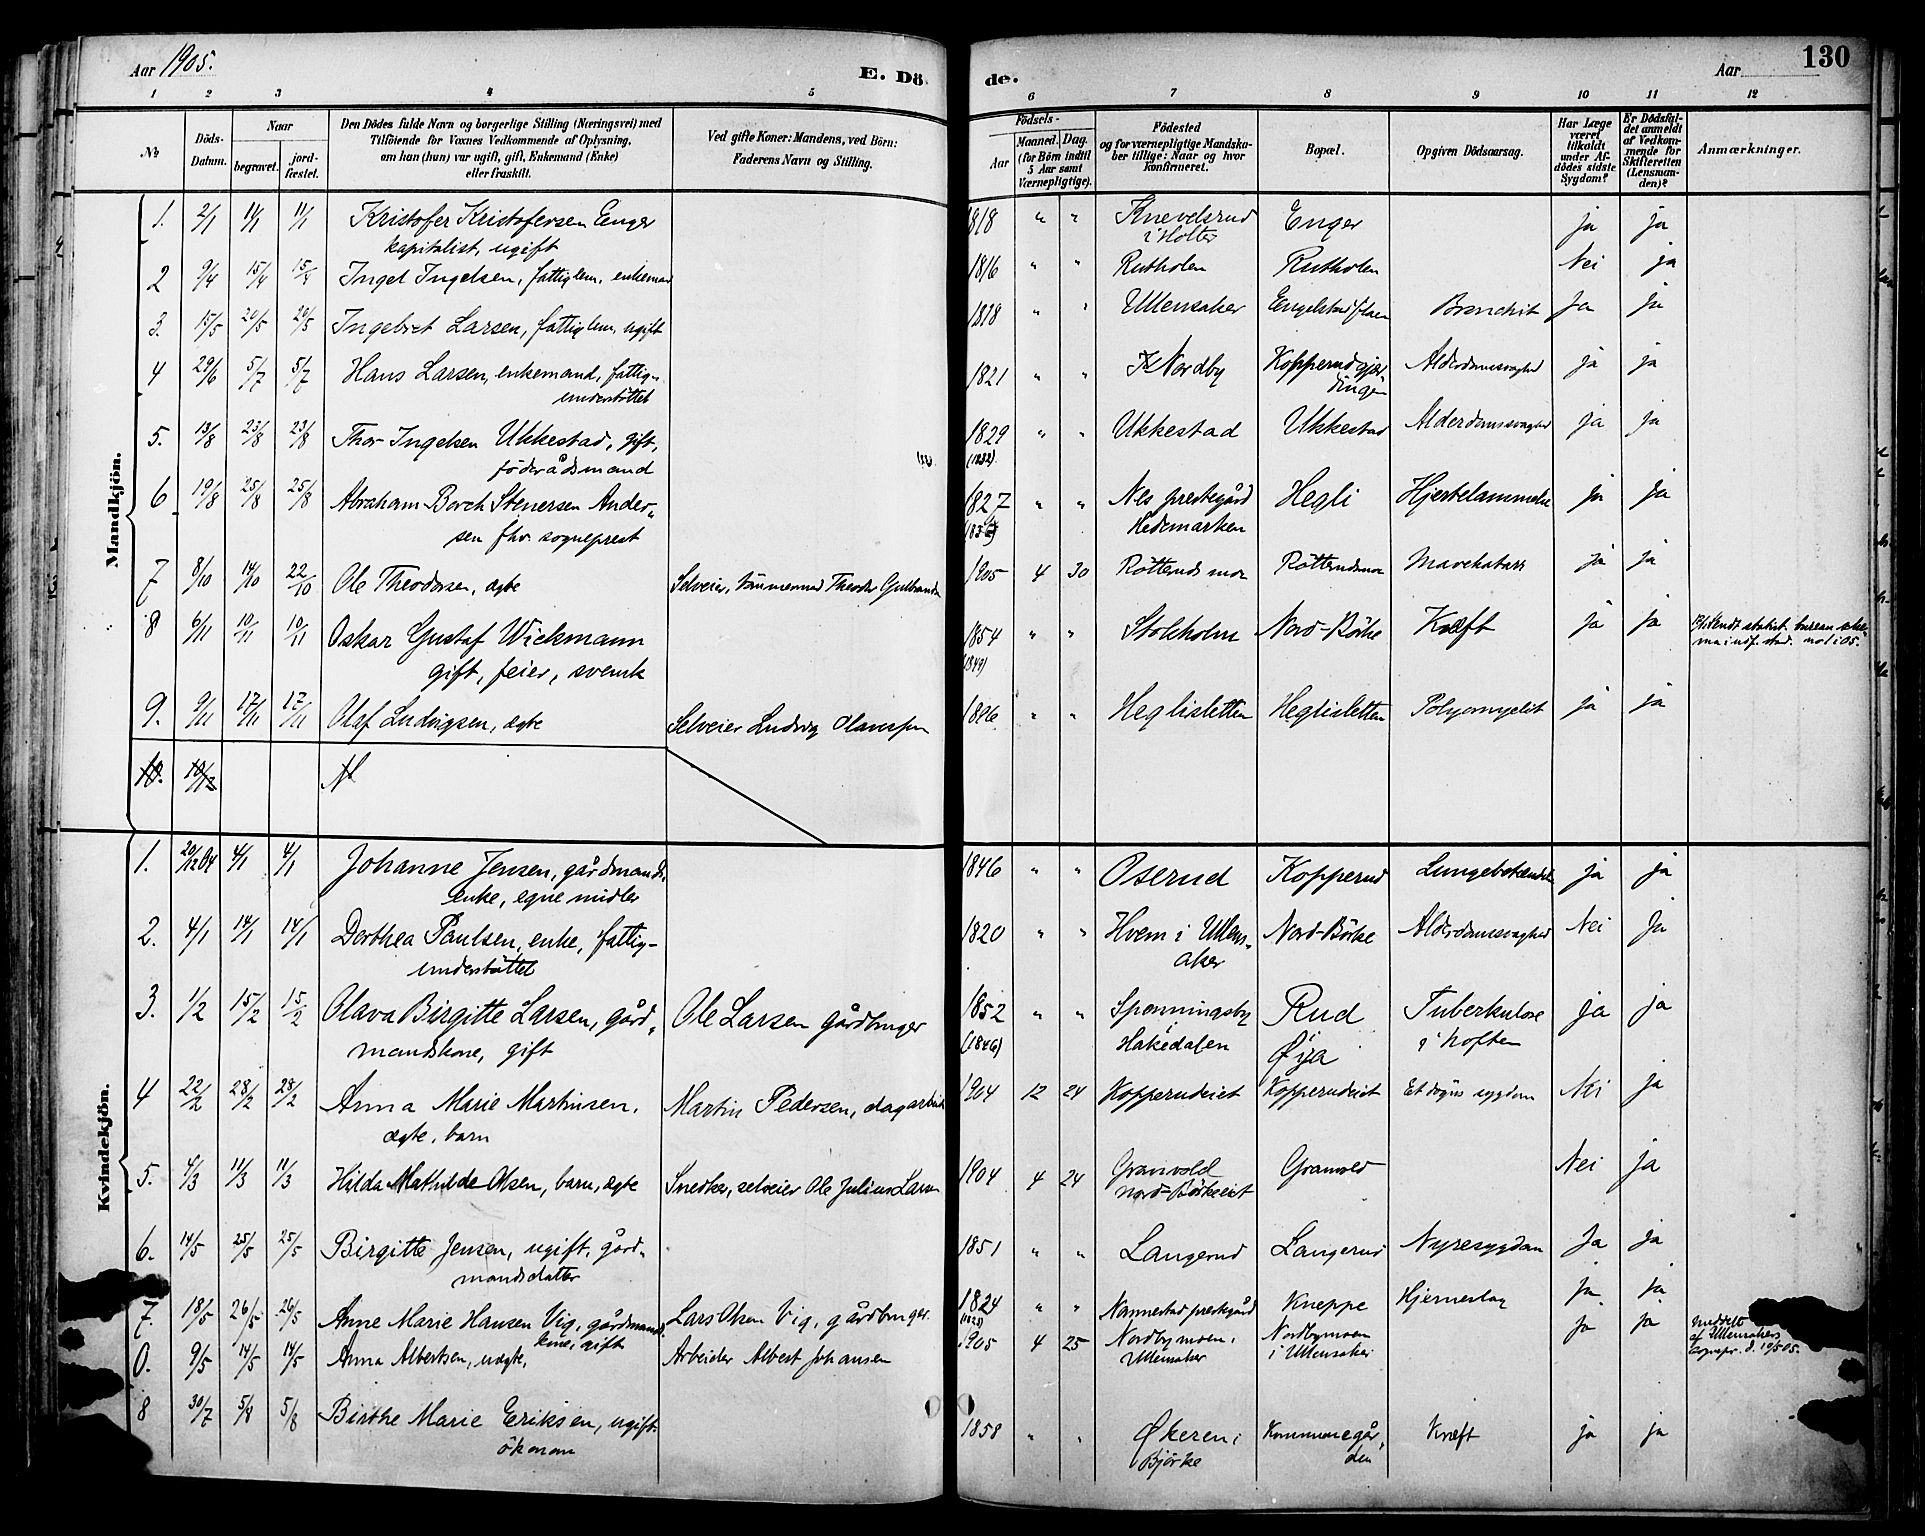 Aar 1905.
E. Dö
de.
Aar
130
1 2 3 4 5 6 7 8 9 10 11 12
№
Döds-Datum.
Naar
begravet.
jord-fæstet.
Den Dödes fulde Navn og borgerlige Stilling (Næringsvei) med
Tilföiende for Voxnes Vedkommende af Oplysning,
om han (hun) var ugift, gift, Enkemand (Enke)
eller fraskilt.
Ved gifte Koner: Mandens, ved Börn:
Faderens Navn og Stilling.
Födsels-
Aar
Maaned. Dag.
(for Börn indtil
5 Aar samt
Værnepligtige).
Födested
og for værnepligtige Mandska-
ber tillige: Naar og hvor
konfirmeret.
Bopæl.
Opgiven Dödsaarsag.
Har Læge
været
tilkaldt
under Af-
dödes sidste
Sygdom?
Er Dödsfal-
det anmeldt
af Vedkom-
mende for
Skifteretten
(Lensman-
den)?
Anmærkninger.
Mandkjön.
1. 2/1 11/1 11/1 Kristofer Kristofersen Enger 1818 " " Knevelsrud Enger ja ja
kapitalist, ugift i Holter
2 9/4 15/4 15/4 Ingel Ingelsen, fattiglem, enkemand 1816 " " Rutholen Rutholen Nei ja
3. 17/5 20/5 20/5 Ingebret Larsen, fattiglem, ugift 1818 " " Ullensaker Engelstad Bronchit Ja ja
4 29/6 5/7 5/7 Hans Larsen, enkemand, fattig- 1821 " " Nordby Kopperudgjer Alderdomssvaghed ja ja
understöttet dingen
5. 13/8 23/8 23/8 Thor Ingelsen Ukkestad, gift, 1829 " " Ukkestad Ukkestad Alderdomssvaghed ja ja
föderådsmand (1832)
6 19/8 25/8 25/8 Abraham Borch Stenersen Ander- 1827 " " Nes prestegård Hegli Hjertelammelse ja ja
sen fhv. sogneprest Hedemarken
7 8/10 14/10 22/10 Ole Theodorsen, ægte Selveier, tömmermand Theodor Gulbrandsen 1905 4 30 Rotterudsmoen Rotterudsmoen Mavekatarr ja ja
8 6/11 10/11 10/11 Oskar Gustaf Wickmann 1854 " " Stokholm Nord-Börke Kræft ja ja
gift, feier, svensk (1849)
9. 9/11 17/11 17/11 Olaf Ludvigsen, ægte Selveier Ludvig Olaussen 1896 " " Heglisletten Heglisletten Polyomyelit ja ja
10. 10/12
Kvindekjön.
1. 20/12 04 4/1 4/1 Johanne Jensen, gårdmands- 1846 " " Oserud Kopperud Lungebetændelse ja ja
enke, egne midler
2. 4/1 14/1 14/1 Dorthea Paulsen, enke, fattig- 1820 " " Hvem i Ullens- Nord-Börke Alderdomssvaghed Nei Ja
understöttet aker
3. 1/2 15/2 15/2 Olava Birgitte Larsen, gård- Ole Larsen gårdbruger 1852 " " Spenningsby Rud Tuberkulose ja ja
mandskone, gift (1846) Hakedalen Øya i hoften
4 22/2 28/2 28/2 Anna Marie Martinsen, Martin Pedersen, dagarbeider 1904 12 24 Kopperudeiet Kopperudeiet Et døgns sygdom Nei ja
ægte, barn
5. 4/3 11/3 11/3 Hilda Mathilde Olsen, barn, ægte Snedker, selveier Ole Julius Larsen 1904 4 24 Granvold Granvold Nei ja
Nord-Börkeeiet
6. 14/5 25/5 25/5 Birgitte Jensen, ugift, gård- 1851 " " Langerud Langerud Nyresygdom Ja ja
mandsdatter
7. 18/5 26/5 26/5 Anne Marie Hansen Vig, gårdmands- Lars Olsen Vig, gårdbruger. 1824 " " Nannestad prestegård Kneppe Hjerneslag Ja ja
kone, gift
0. 9/5 14/5 14/5 Anna Albertsen, uægte, Arbeider Albert Johansen 1905 4 25 Nordbymoen i Nordbymoen ja ja Meddelt
Ullensaker i Ullensaker af Ullensakers
sognepr. d. 19/5 05.
8 30/7 5/8 5/8 Birthe Marie Eriksen, ugift 1858 " " Økeren i Kommunegår- Kræft ja ja
ökonom Bjørke den